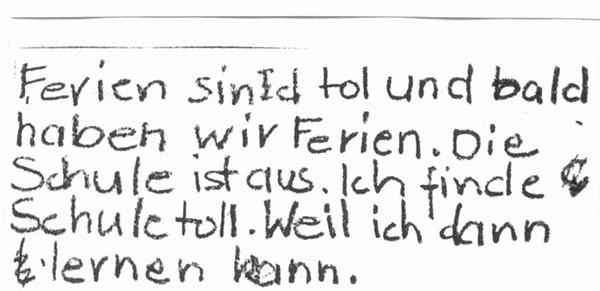 Ferien sind tol und bald
haben wir Ferien. Die
Schule ist aus. Ich finde
Schule toll. Weil ich dann
lernen kann.